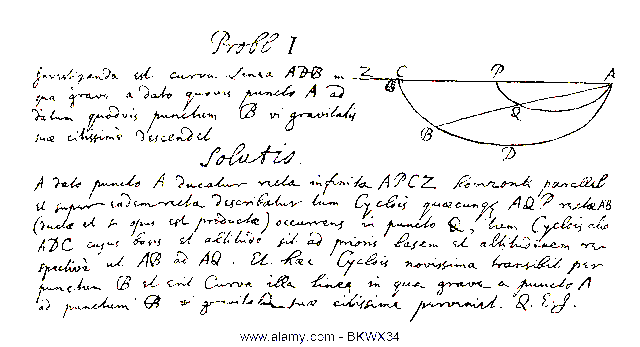 Probl I
Z C P A
Investiganda est curva Linea ADB in
qua grave a dato quovis puncto A ad
datum quodvis punctum B vi gravitatis
suæ citissimè descendet
B Q
D
Solutio.
A dato puncto A ducatur recta infinita APCZ horizonti parallel
et super eadem recta describatur tum Cyclois quæcunq AQP rectæ AB
(ductæ et si opus est productæ) occurrens in puncto Q, tum Cyclois alia
ADC cujus basis et altitudo sit ad prioris basem et altitudinem res
pectivè ut AB ad AQ. Et hæc Cyclois novissima transibit per
punctum B et erit Curva illa linea in qua grave a puncto A
ad punctum B vi gravitatis suæ citissime perveniet. Q.E.I.
www.alamy.com - BKWX34